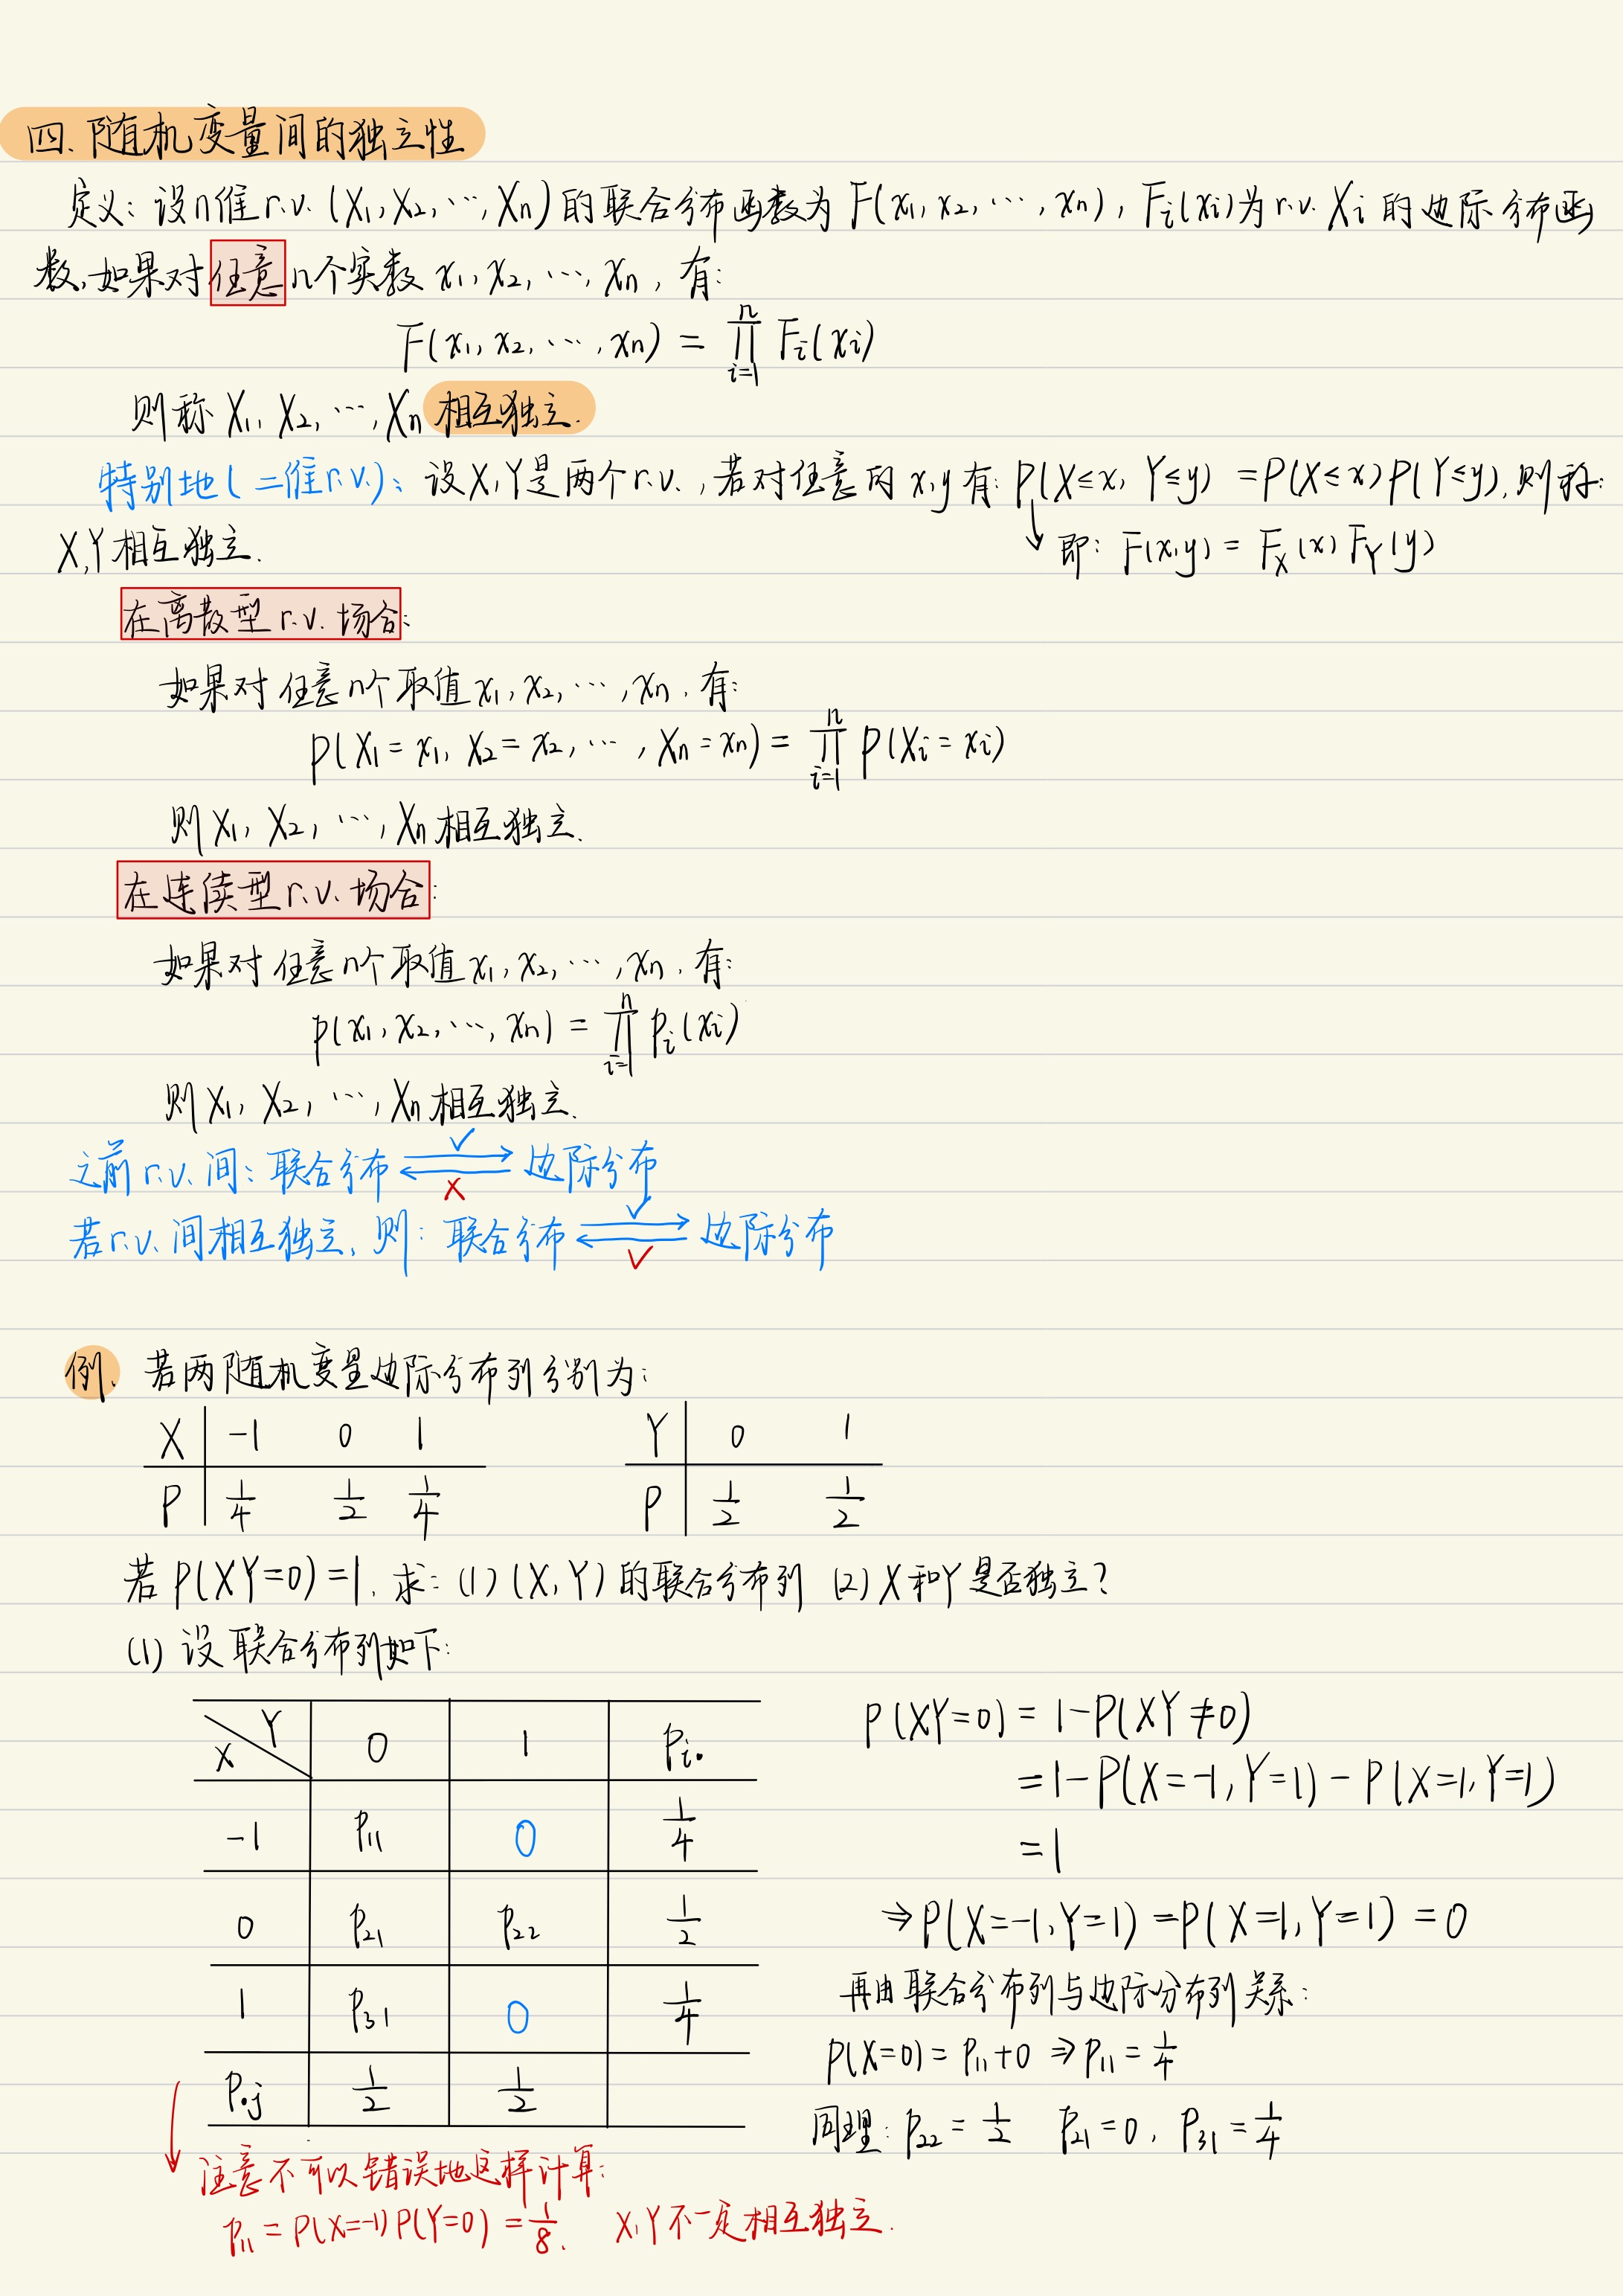 四. 随机变量间的独立性
定义: 设n维r.v. (X₁, X₂, ⋯, Xn) 的联合分布函数为 F(x₁, x₂, ⋯, xn), Fᵢ(xᵢ)为 r.v. Xᵢ 的边际分布函
数, 如果对任意n个实数 x₁, x₂, ⋯, xn, 有:
F(x₁, x₂, ⋯, xn) = ∏ⁿᵢ₌₁ Fᵢ(xᵢ)
则称 X₁, X₂, ⋯, Xn 相互独立.
特别地(二维r.v.): 设X,Y是两个r.v., 若对任意的 x,y 有: P(X≤x, Y≤y) = P(X≤x)P(Y≤y), 则称:
X,Y 相互独立.
即: F(x,y) = F_X(x) F_Y(y)
在离散型 r.v. 场合:
如果对任意n个取值 x₁, x₂, ⋯, xn, 有:
P(X₁=x₁, X₂=x₂, ⋯, Xn=xn) = ∏ⁿᵢ₌₁ P(Xᵢ=xᵢ)
则 X₁, X₂, ⋯, Xn 相互独立.
在连续型 r.v. 场合:
如果对任意n个取值 x₁, x₂, ⋯, xn, 有:
p(x₁, x₂, ⋯, xn) = ∏ⁿᵢ₌₁ pᵢ(xᵢ)
则 X₁, X₂, ⋯, Xn 相互独立.
之前 r.v. 间: 联合分布 ✓⇄× 边际分布
若r.v. 间相互独立, 则: 联合分布 ✓⇄✓ 边际分布
例. 若两随机变量边际分布列分别为:
X -1 0 1 Y 0 1
P 1/4 1/2 1/4 P 1/2 1/2
若 P(XY=0)=1, 求: (1) (X,Y) 的联合分布列 (2) X和Y是否独立?
(1) 设联合分布列如下:
X\Y 0 1 pᵢ.
-1 p₁₁ 0 1/4
0 p₂₁ p₂₂ 1/2
1 p₃₁ 0 1/4
p.j 1/2 1/2
P(XY=0) = 1-P(XY≠0)
=1-P(X=-1,Y=1) - P(X=1,Y=1)
=1
⇒P(X=-1,Y=1) =P(X=1,Y=1) =0
再由联合分布列与边际分布列关系:
P(X=0)= p₁₁+0 ⇒p₁₁ = 1/4
同理: p₂₂= 1/2 p₂₁=0, p₃₁=1/4
注意不可以错误地这样计算:
p₁₁ = P(X=-1)P(Y=0) = 1/8. X,Y不一定相互独立.